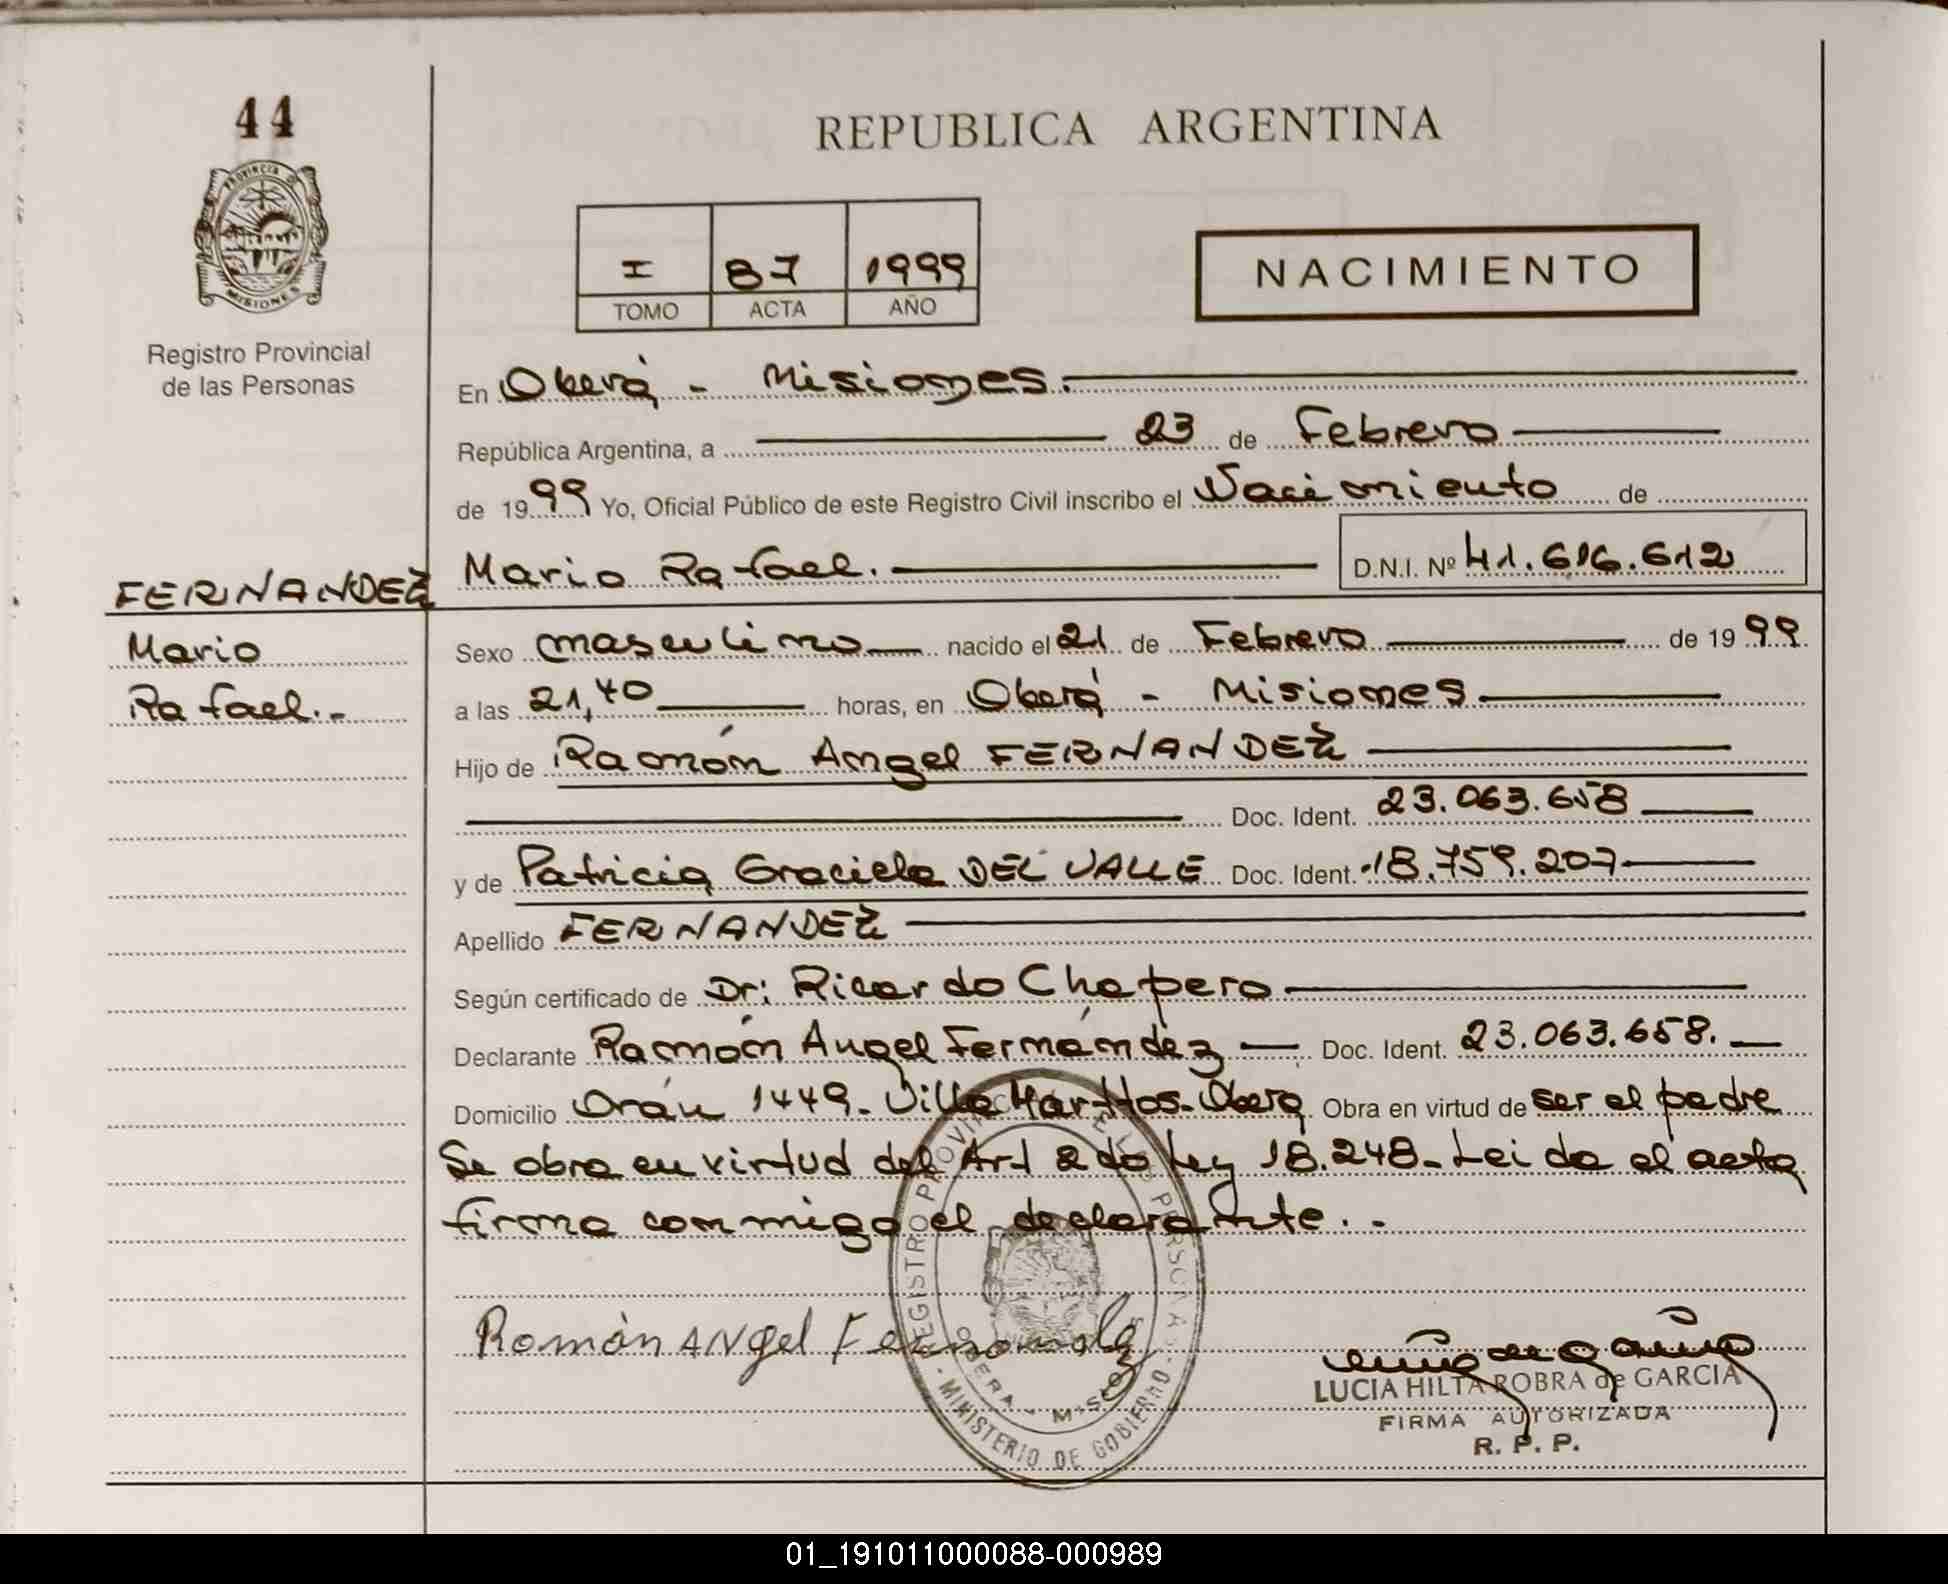 44
PROVINCIA D
MISIONES
Registro Provincial
de las Personas
REPUBLICA ARGENTINA
I 87 1999
TOMO ACTA AÑO
NACIMIENTO
En Oberá - Misiones.
República Argentina, a 23 de Febrero
de 1999 Yo, Oficial Público de este Registro Civil inscribo el Nacimiento de
Mario Rafael. D.N.I. Nº 41.616.612
FERNANDEZ
Mario
Rafael.-
Sexo masculino nacido el 21 de Febrero de 1999
a las 21,40 horas, en Oberá - Misiones
Hijo de Ramón Angel FERNANDEZ
Doc. Ident. 23.063.658
y de Patricia Graciela DEL VALLE Doc. Ident. 18.759.207
Apellido FERNANDEZ
Según certificado de Dr: Ricardo Chapero
Declarante Ramón Angel Fernández Doc. Ident. 23.063.658.
Domicilio Orán 1449- Villa Martos- Oberá Obra en virtud de ser el padre
Se obra en virtud del Art 2do Ley 18.248- Leida el acta
firma conmigo el declarante. -
Ramón ANgel Fernandez
REGISTRO PROVINCIAL DE LAS PERSONAS
OBERA - MISIONES
- MINISTERIO DE GOBIERNO -
LUCIA HILTA ROBRA de GARCIA
FIRMA AUTORIZADA
R. P. P.
01_191011000088-000989